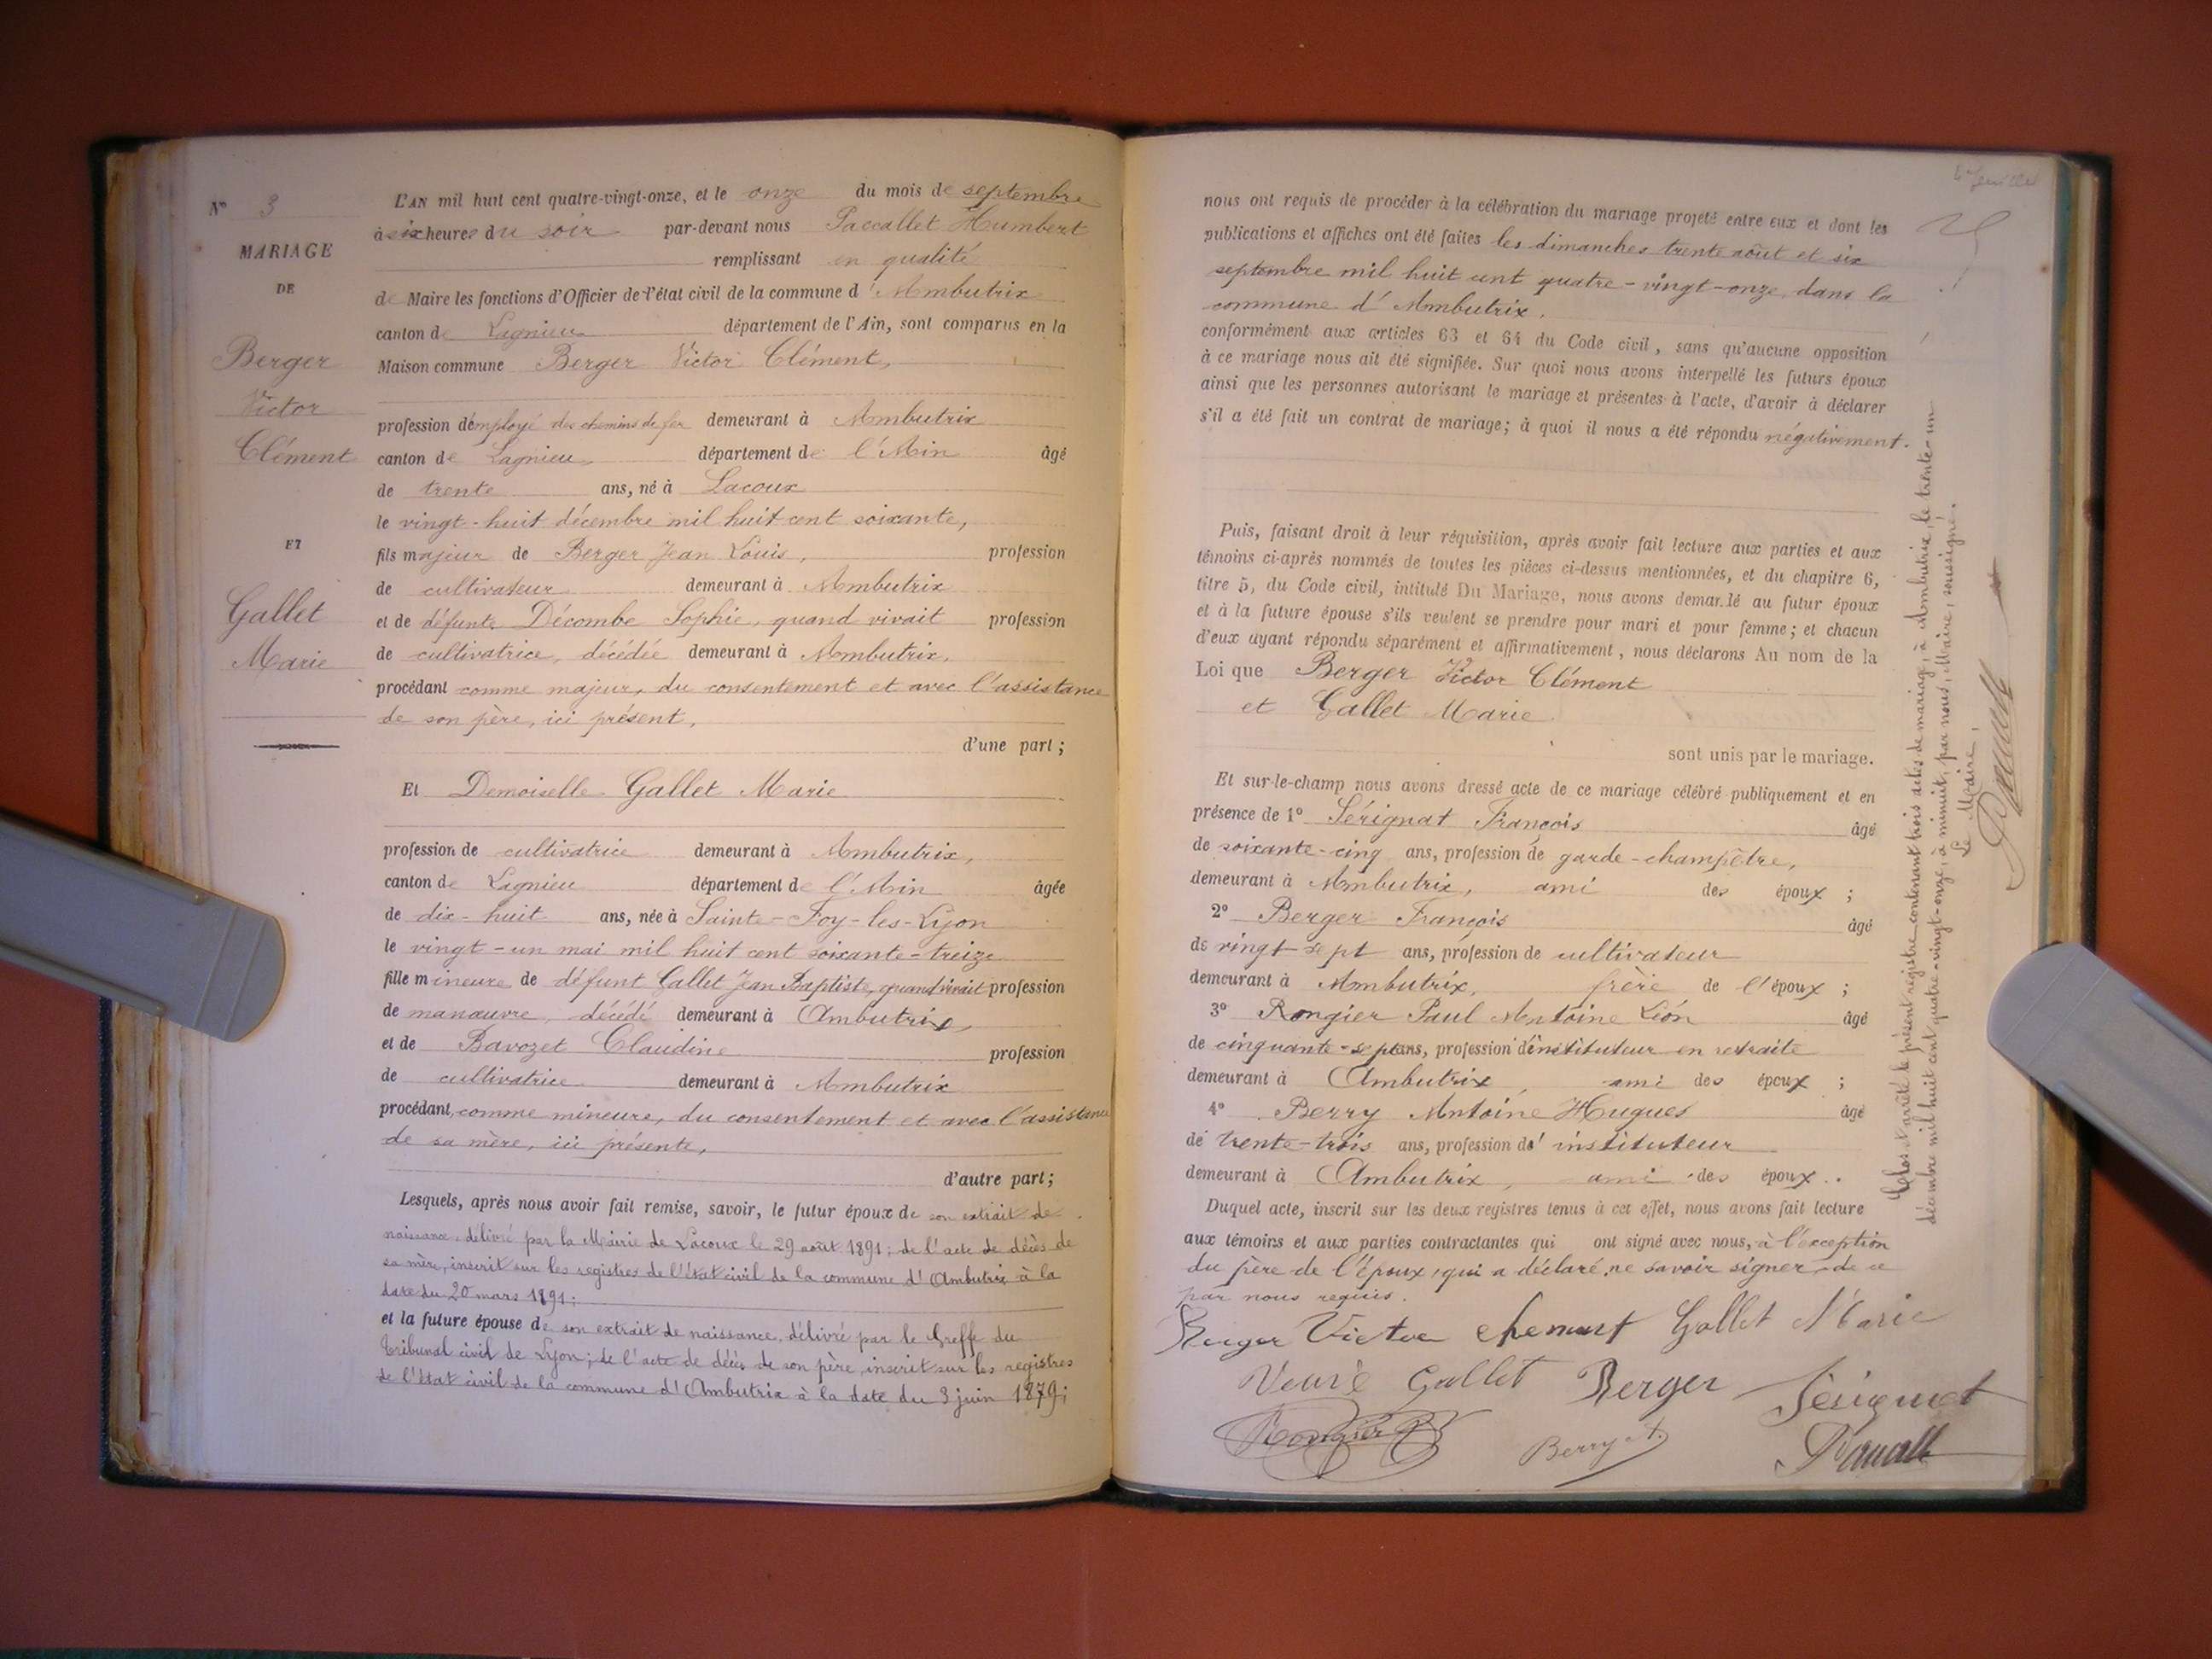 N° 3
MARIAGE
DE
Berger
Victor
Clément
ET
Gallet
Marie
L'AN mil huit cent quatre-vingt-onze, et le onze du mois de septembre
à six heures du soir par-devant nous Paccallet Humbert
remplissant en qualité
de Maire les fonctions d'Officier de l'état civil de la commune d'Ambutrix
canton de Lagnieu département de l'Ain, sont comparus en la
Maison commune Berger Victor Clément,
profession d'employé des chemins de fer demeurant à Ambutrix
canton de Lagnieu, département de l'Ain âgé
de trente ans, né à Lacoux
le vingt-huit décembre mil huit cent soixante,
fils majeur de Berger Jean Louis, profession
de cultivateur demeurant à Ambutrix
et de défunte Décombe Sophie, quand vivait profession
de cultivatrice, décédée demeurant à Ambutrix,
procédant comme majeur, du consentement et avec l'assistance
de son père, ici présent,
d'une part ;
Et Demoiselle Gallet Marie
profession de cultivatrice demeurant à Ambutrix,
canton de Lagnieu département de l'Ain âgée
de dix-huit ans, née à Sainte-Foy-les-Lyon
le vingt-un mai mil huit cent soixante-treize
fille mineure de défunt Gallet Jean Baptiste, quand vivait profession
de manœuvre, décédé demeurant à Ambutrix,
et de Bavozet Claudine profession
de cultivatrice demeurant à Ambutrix
procédant, comme mineure, du consentement et avec l'assistance
de sa mère, ici présente,
d'autre part ;
Lesquels, après nous avoir fait remise, savoir, le futur époux de son extrait de
naissance, délivré par la Mairie de Lacoux le 29 août 1891 ; de l'acte de décès de
sa mère, inscrit sur les registres de l'état civil de la commune d'Ambutrix à la
date du 20 mars 1891 ;
et la future épouse de son extrait de naissance, délivré par le Greffe du
Tribunal civil de Lyon ; de l'acte de décès de son père, inscrit sur les registres
de l'état civil de la commune d'Ambutrix à la date du 3 juin 1879 ;
nous ont requis de procéder à la célébration du mariage projeté entre eux et dont les
publications et affiches ont été faites les dimanches trente août et six
septembre mil huit cent quatre-vingt-onze, dans la
commune d'Ambutrix.
conformément aux articles 63 et 64 du Code civil, sans qu'aucune opposition
à ce mariage nous ait été signifiée. Sur quoi nous avons interpellé les futurs époux
ainsi que les personnes autorisant le mariage et présentes à l'acte, d'avoir à déclarer
s'il a été fait un contrat de mariage ; à quoi il nous a été répondu négativement.
Puis, faisant droit à leur réquisition, après avoir fait lecture aux parties et aux
témoins ci-après nommés de toutes les pièces ci-dessus mentionnées, et du chapitre 6,
titre 5, du Code civil, intitulé Du Mariage, nous avons demandé au futur époux
et à la future épouse s'ils veulent se prendre pour mari et pour femme ; et chacun
d'eux ayant répondu séparément et affirmativement, nous déclarons Au nom de la
Loi que Berger Victor Clément
et Gallet Marie
sont unis par le mariage.
Et sur-le-champ nous avons dressé acte de ce mariage célébré publiquement et en
présence de 1° Sérignat François âgé
de soixante-cinq ans, profession de garde-champêtre,
demeurant à Ambutrix, ami des époux ;
2° Berger François âgé
de vingt-sept ans, profession de cultivateur
demeurant à Ambutrix, frère de l'époux ;
3° Rongier Paul Antoine Léon âgé
de cinquante-sept ans, profession d'instituteur en retraite
demeurant à Ambutrix, ami des époux ;
4° Berry Antoine Hugues âgé
de trente-trois ans, profession d'instituteur
demeurant à Ambutrix, ami des époux.
Duquel acte, inscrit sur les deux registres tenus à cet effet, nous avons fait lecture
aux témoins et aux parties contractantes qui ont signé avec nous, à l'exception
du père de l'époux, qui a déclaré ne savoir signer de ce
par nous requis.
Berger Victor Clement Gallet Marie
Veuve Gallet Berger Sérignat
Rongier Berry A.
Clos et arrêté le présent registre contenant trois actes de mariage, à Ambutrix, le trente-un
décembre mil huit cent quatre-vingt-onze, à minuit, par nous, Maire, soussigné.
Le Maire,